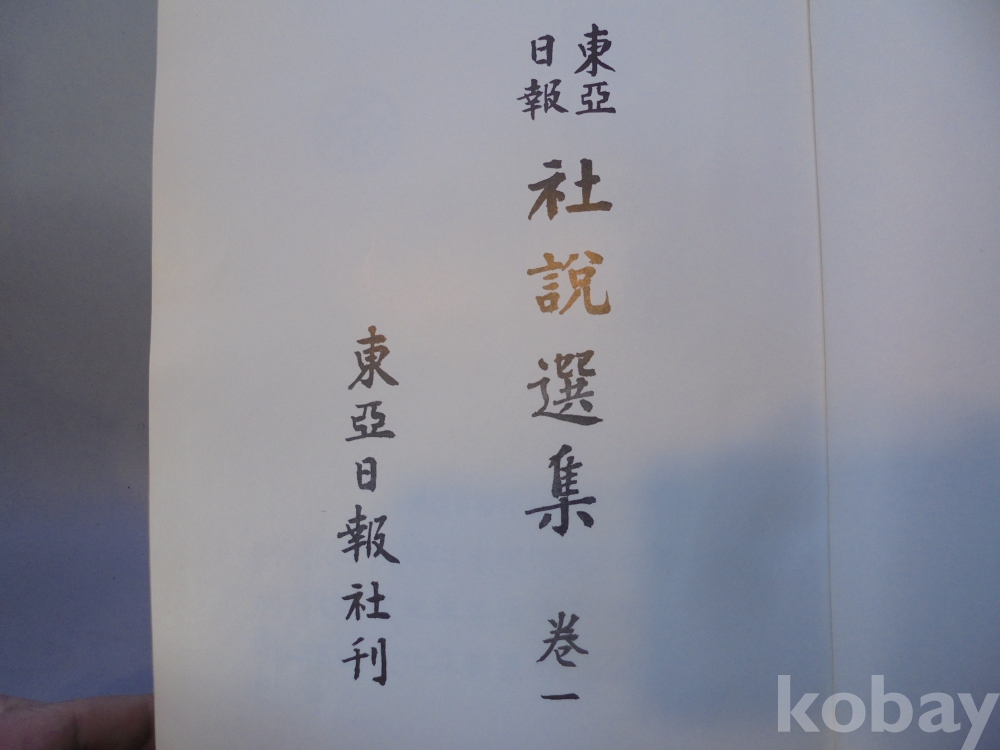 東亞日報
社說選集 卷一
東亞日報社刊
kobay